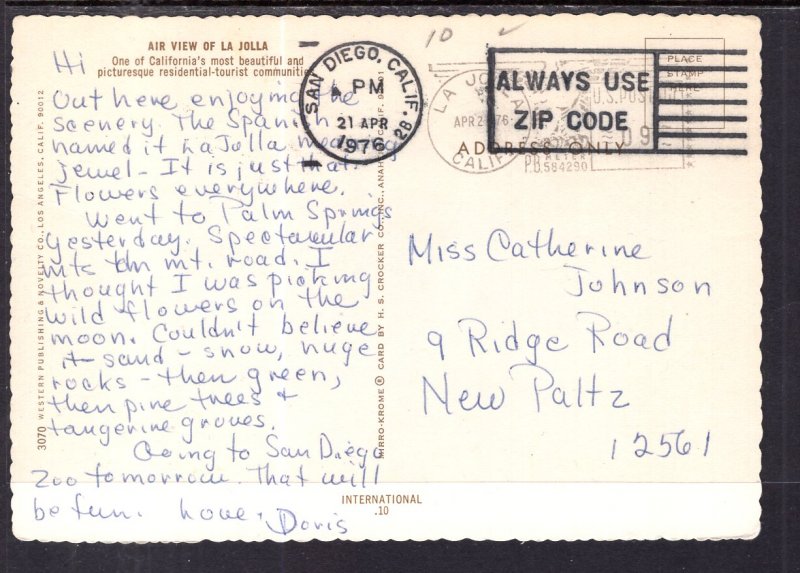 AIR VIEW OF LA JOLLA
One of California's most beautiful and
picturesque residential-tourist communitie
Hi
Out here enjoying the
scenery. The Spanish
named it LaJolla meaning
jewel - It is just that.
Flowers everywhere.
Went to Palm Springs
yesterday. Spectacular
mts on mt. road. I
thought I was picking
wild flowers on the
moon. Couldn't believe
it - sand - snow, huge
rocks - then green,
then pine trees &
tangerine groves.
Going to San Diego
Zoo tomorrow. That will
be fun. Love, Doris
3070 WESTERN PUBLISHING & NOVELTY CO., LOS ANGELES, CALIF. 90012
MIRRO-KROME® CARD BY H. S. CROCKER CO., INC., ANAH
01
SAN DIEGO, CALIF.
PM
21 APR
1976
92
10
LA JOLLA
APR 2 '76
CALIF
ALWAYS USE
ZIP CODE
U.S. POST
09
P.B. METER
P.B.584290
PLACE
STAMP
HERE
ADDRESS ONLY
Miss Catherine
Johnson
9 Ridge Road
New Paltz
12561
INTERNATIONAL
.10